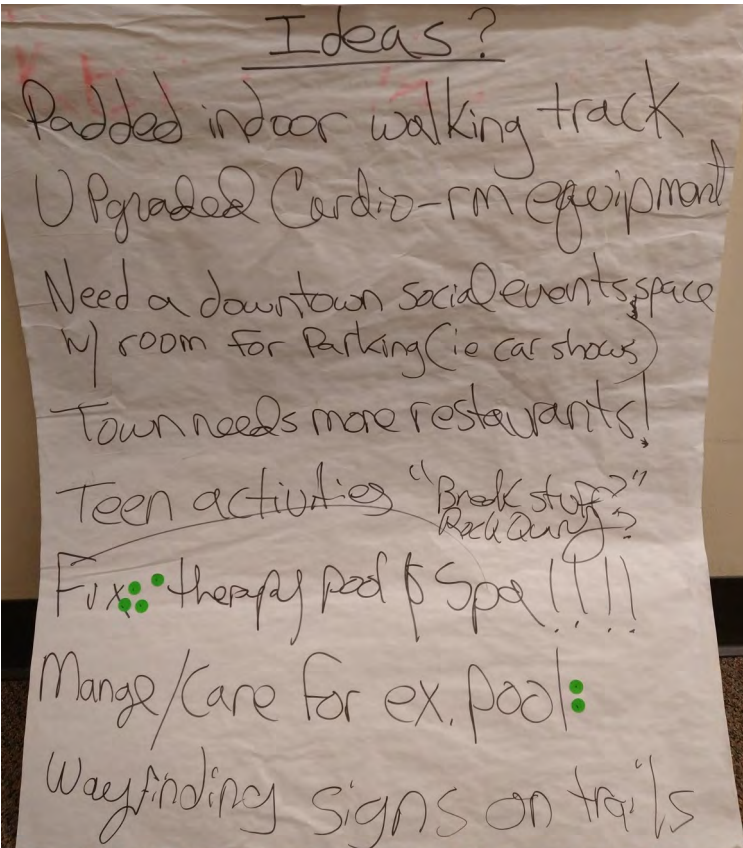 Ideas?
Padded indoor walking track
UPgraded Cardio-rm equipment
Need a downtown social events space
w/ room for Parking (ie car shows)
Town needs more restaurants!
Teen activities "Break stuff?"
Rock Quarry?
Fix therapy pool & Spa!!!!
Mange/Care for ex. pool
Wayfinding signs on trails